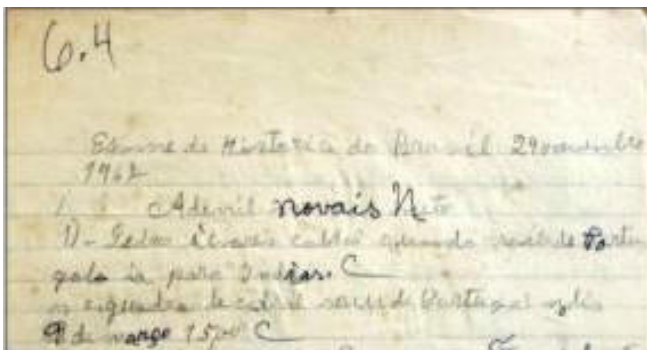 6.4
Exame de Historia do Brasil 29 novembro
1962
Ademil novais Neto
1) - Pedro Alvares cabral quando saiu de Portu
gala ia para Indias. C
a esquadra de cabral saiu de Portugal
9 de março 1500 C